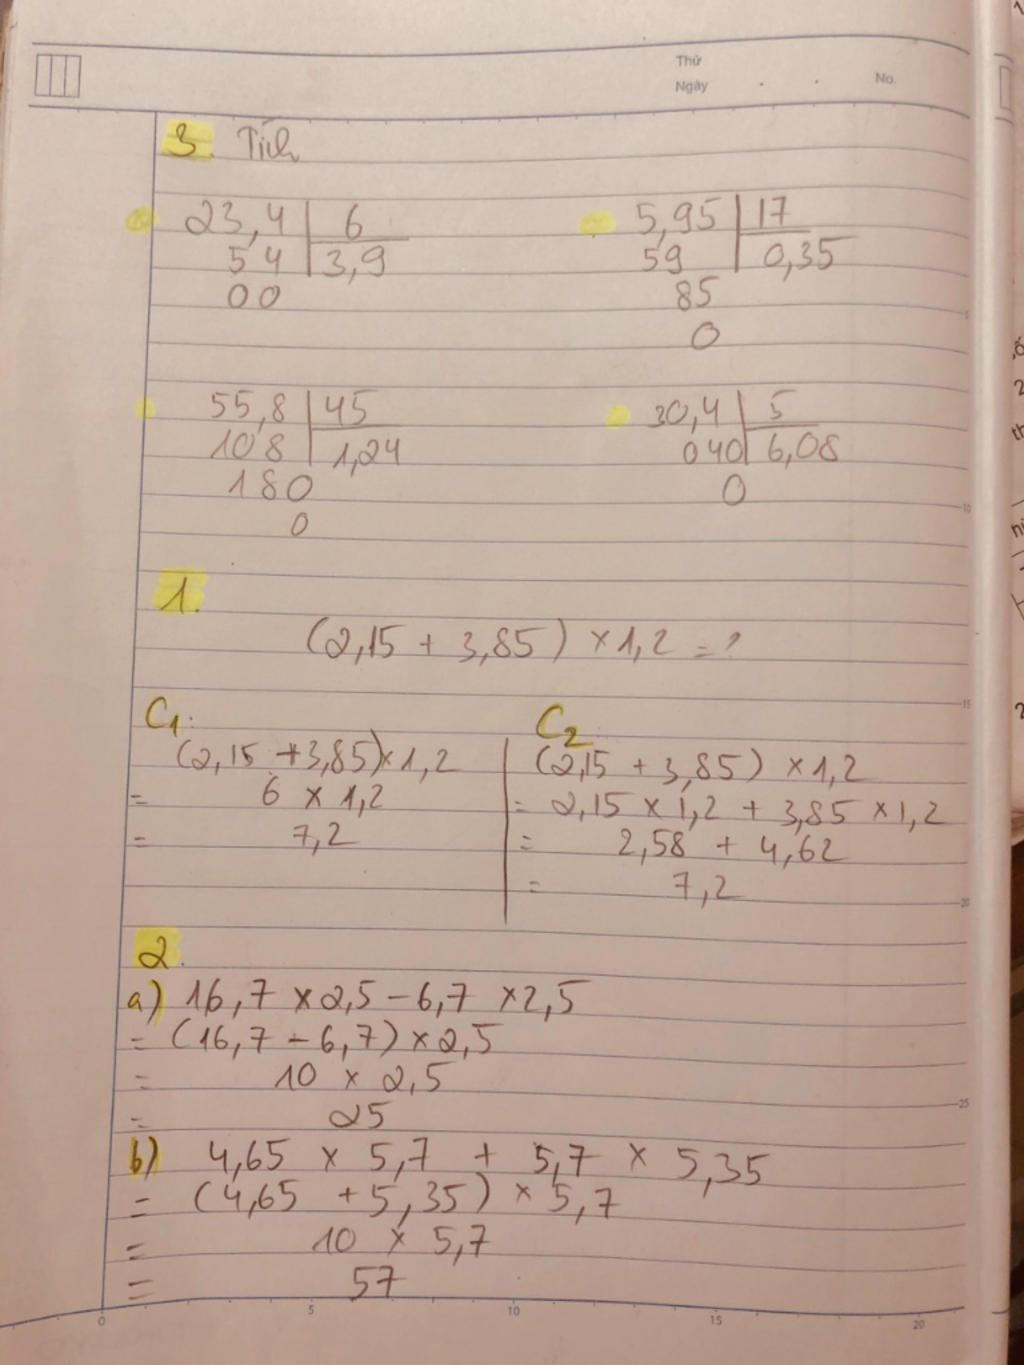 Thứ
Ngày . . No.
3. Tính
23,4 | 6
54 | 3,9
00
5,95 | 17
59 | 0,35
85
0
55,8 | 45
108 | 1,24
180
0
30,4 | 5
040 | 6,08
0
1.
(2,15 + 3,85) × 1,2 = ?
C1.
(2,15 + 3,85) × 1,2
= 6 × 1,2
= 7,2
C2
(2,15 + 3,85) × 1,2
= 2,15 × 1,2 + 3,85 × 1,2
= 2,58 + 4,62
= 7,2
2.
a) 16,7 × 2,5 - 6,7 × 2,5
= (16,7 - 6,7) × 2,5
= 10 × 2,5
= 25
b) 4,65 × 5,7 + 5,7 × 5,35
= (4,65 + 5,35) × 5,7
= 10 × 5,7
= 57
5
10
15
20
25
0 5 10 15 20